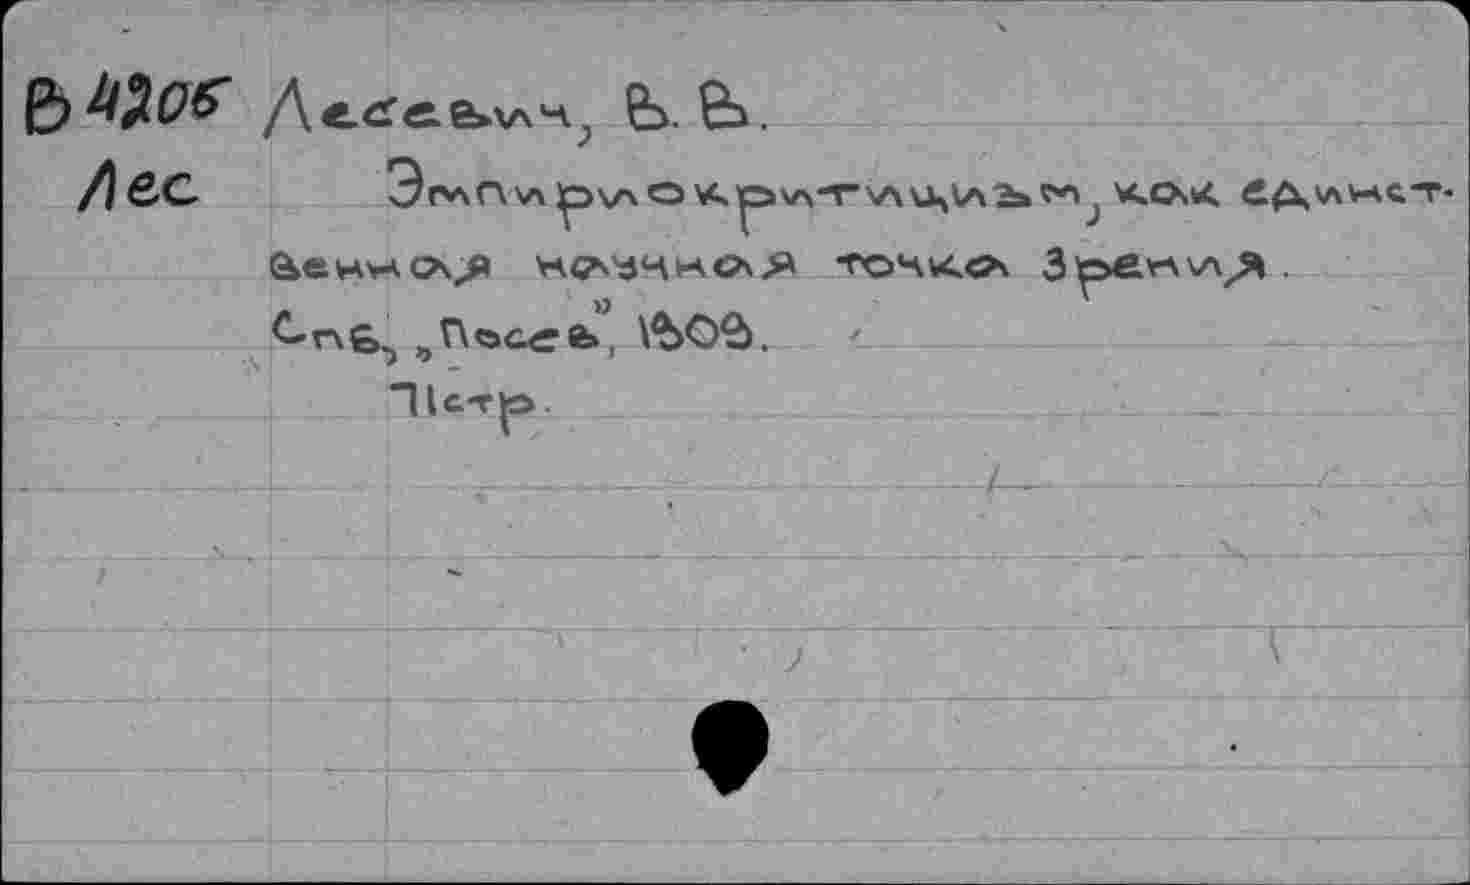 В4205 Лесевич, В. В.
Лес Эмпириокритицизм, как единст-
венная научная точка зрения.
Спб., „Посев", 1909.
71 стр.